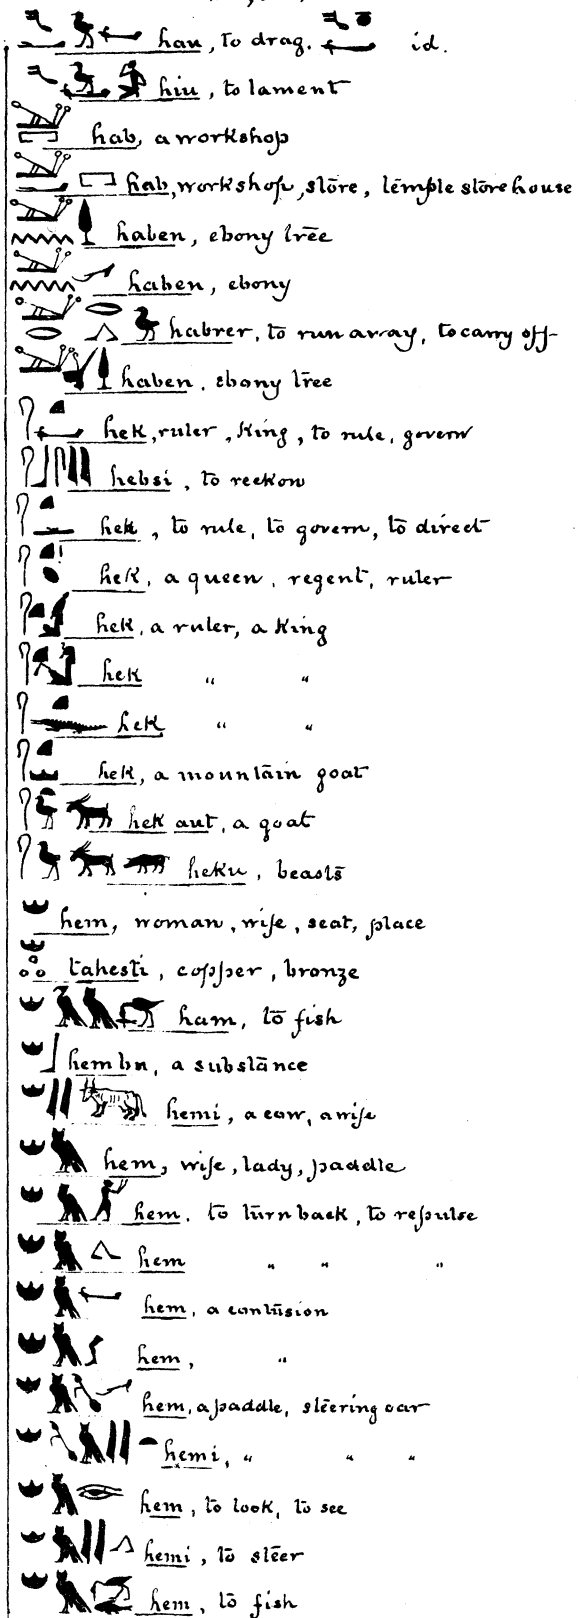 hau, to drag. id.
hiu, to lament
hab, a workshop
hab, workshop, store, temple store house
haben, ebony tree
haben, ebony
habrer, to run away, to carry off
haben, ebony tree
hek, ruler, King, to rule, govern
hebsi, to reckon
hek, to rule, to govern, to direct
hek, a queen, regent, ruler
hek, a ruler, a King
hek " "
hek " "
hek, a mountain goat
hek aut, a goat
heku, beasts
hem, woman, wife, seat, place
tahesti, copper, bronze
ham, to fish
hem bn, a substance
hemi, a cow, a wife
hem, wife, lady, paddle
hem, to turn back, to repulse
hem " " "
hem, a contusion
hem, "
hem, a paddle, steering oar
hemi, " " "
hem, to look, to see
hemi, to steer
hem, to fish